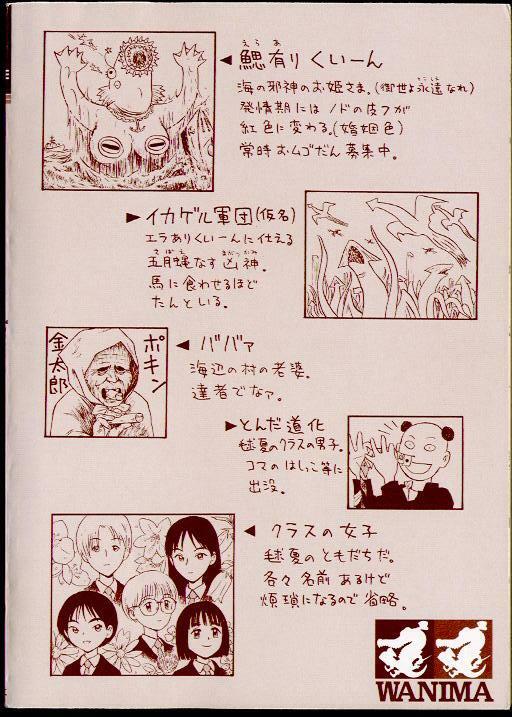 えら あ
◀鰓有りくいーん
とこしえ
海の邪神のお姫さま。(御世よ永遠なれ)
発情期にはノドの皮フが
紅色に変わる。(婚姻色)
常時おムコだん募集中。
▶イカゲル軍団(仮名)
エラありくいーんに仕える
さばえ まがつかみ
五月蝿なす凶神。
馬に食わせるほど
たんといる。
ポキン
金太郎
◀ババァ
海辺の村の老婆。
達者でなァ。
▶とんだ道化
毬夏のクラスの男子。
コマのはしっこ等に
出没。
◀クラスの女子
毬夏のともだちだ。
各々名前あるけど
煩瑣になるので省略。
WANIMA